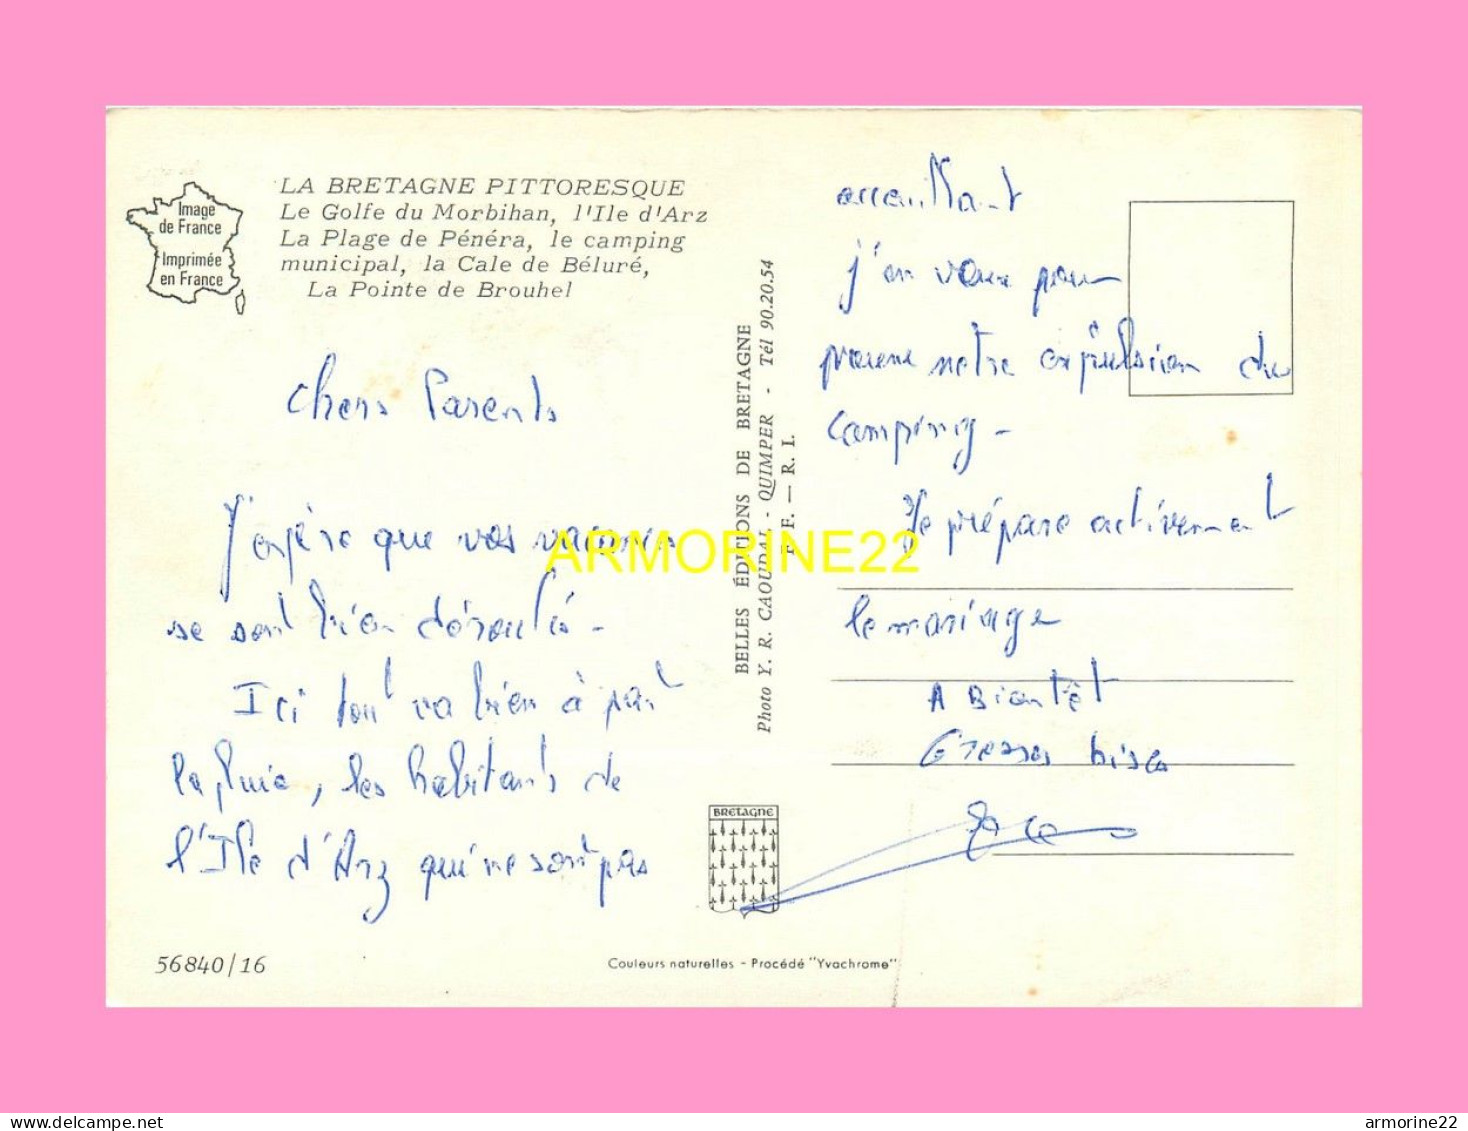 Image
de France
Imprimée
en France
LA BRETAGNE PITTORESQUE
Le Golfe du Morbihan, l'Ile d'Arz
La Plage de Pénéra, le camping
municipal, la Cale de Béluré,
La Pointe de Brouhel
Chers Parents
J'espère que vos vacances
se sont bien déroulés -
Ici tout va bien à part
la pluie, les habitants de
l'Ile d'Arz qui ne sont pas
56840/16
BELLES ÉDITIONS DE BRETAGNE
Photo Y. R. CAOUDAL - QUIMPER - Tél 90.20.54
F. — R. I.
ARMORINE22
BRETAGNE
Couleurs naturelles - Procédé "Yvachrome"
accueillant
j'en veux pour
preuve notre expulsion du
camping -
Je prépare activement
le mariage
A Bientôt
Grosses bises
armorine22